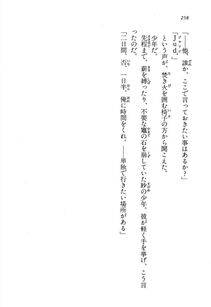 258
「――他、誰か、ここで言っておきたい事はあるか？」
「Jud.」
ジャッジ
という声が、焚き火を囲む椅子の方から聞こえた。
少年だ。
先程まで、薪を縛ったり、不要な竈の石を崩していた眇の少年。彼が軽く手を挙げ、こう言
ったのだ。
「二日間、否、一日半、俺に時間をくれ。――単独で行きたい場所がある」